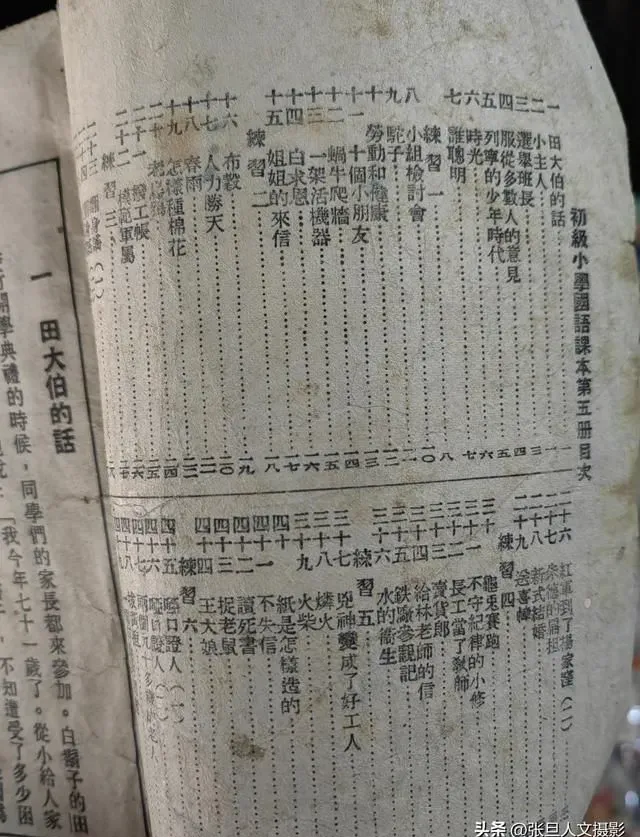 初級小學國語課本第五册目次
一 田大伯的話 一
二 小主人 二
三 選舉班長 三
四 服從多數人的意見 四
五 列寧的少年時代 五
六 時光 六
七 誰聰明 七
練習一 八
八 小組檢討會 一〇
九 駝子 一一
十 勞動和健康 一二
十一 十個小朋友 一三
十二 蝸牛爬牆 一四
十三 一架活機器 一六
十四 白求恩 一七
十五 姐姐的來信 一八
練習二 一九
十六 布穀 二〇
十七 人力勝天 二一
十八 春雨
十九 怎樣種棉花 二四
二十 二五
二十一 撥工帳 二六
二十二 模範軍屬 二七
練習三
二十三
二十六 紅軍到了楊家 (二)
二十七
二十八 新式結婚
二十九 送喜幛
練習四
三十 龜兎賽跑
三十一 不守紀律的小修
三十二 長工當了教師
三十三 賣貨郎
三十四 給林老師的信
三十五 鉄廠參觀記
三十六 水的衞生
練習五
三十七 兇神變成了好工人
三十八 燐火
三十九 火柴
四十 紙是怎樣造的
四十一 不失信
四十二 讀死書
四十三 捉老鼠
四十四 王大娘
練習六
四十五 啞口證人 (一)
四十六 啞口證人
四十七
四十八
四十九
一 田大伯的話
開學典禮的時候，同學們的家長都來參加。白鬍子的田
「我今年七十一歲了。從小給人家
不知道受了多少困
头条 @张旦人文摄影